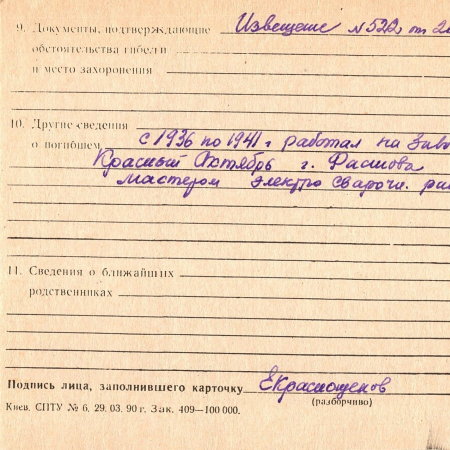 9. Документы, подтверждающие Извещение №522, от
обстоятельства гибели
и место захоронения
10. Другие сведения
о погибшем с 1936 по 1941 г работал на Заво
Красный Октябрь г. Фастова
мастером электро сварочн.
11. Сведения о ближайших
родственниках
Подпись лица, заполнившего карточку ЕКраснощеков
(разборчиво)
Киев, СПТУ № 6, 29. 03. 90 г. Зак. 409—100 000.